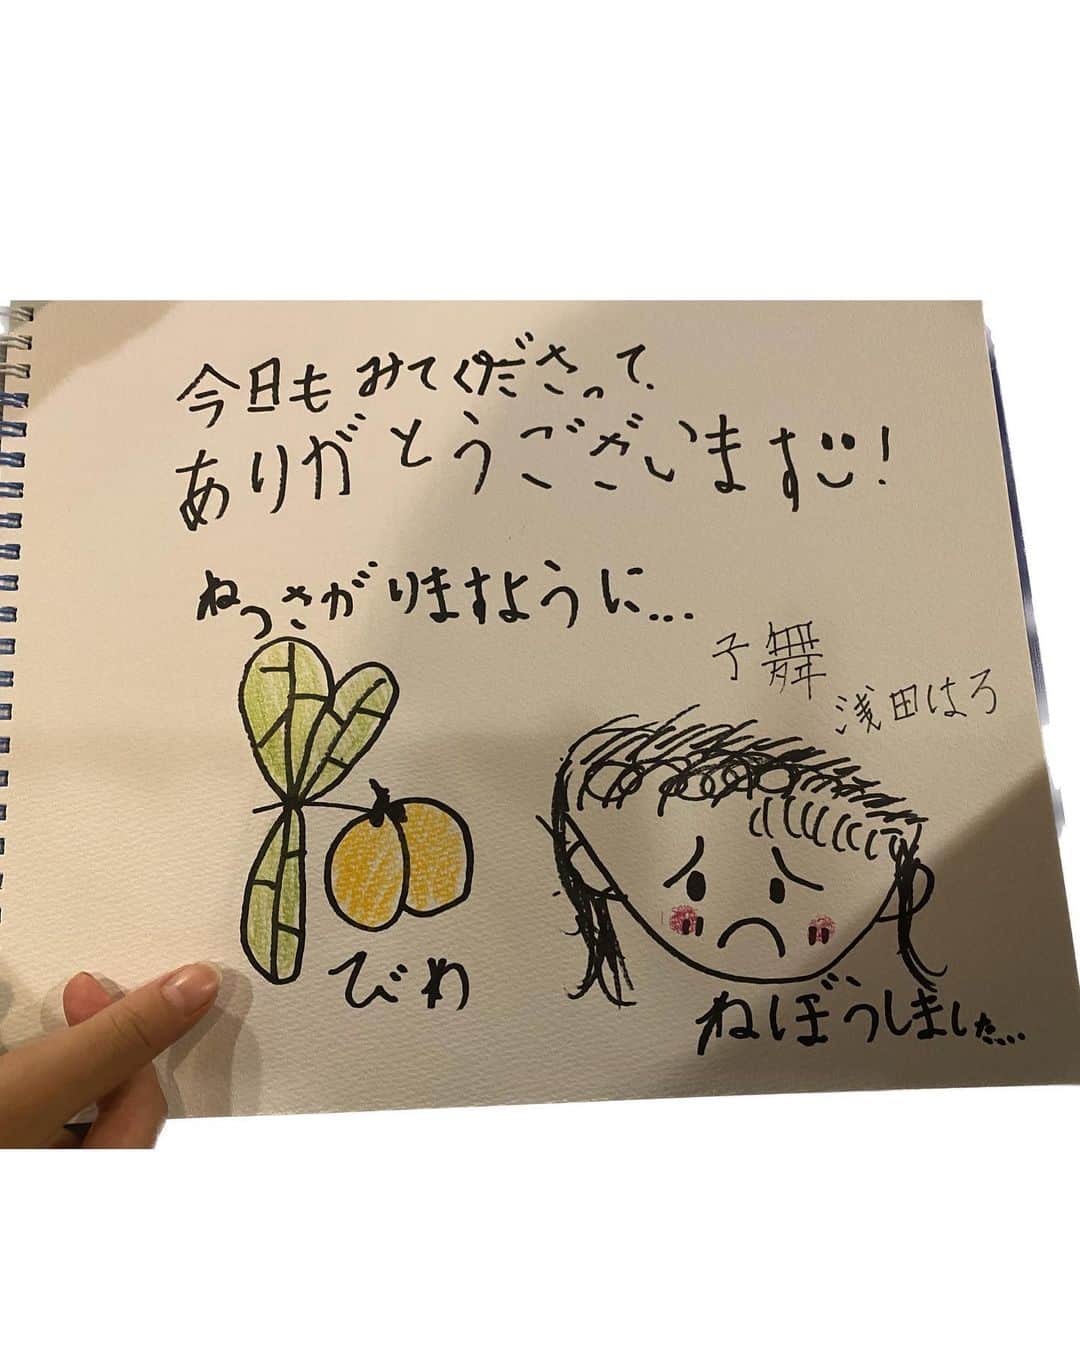 今日もみてくださって、
ありがとうございます!
ねつさがりますように...
子舞
浅田はろ
びわ
ねぼうしました...